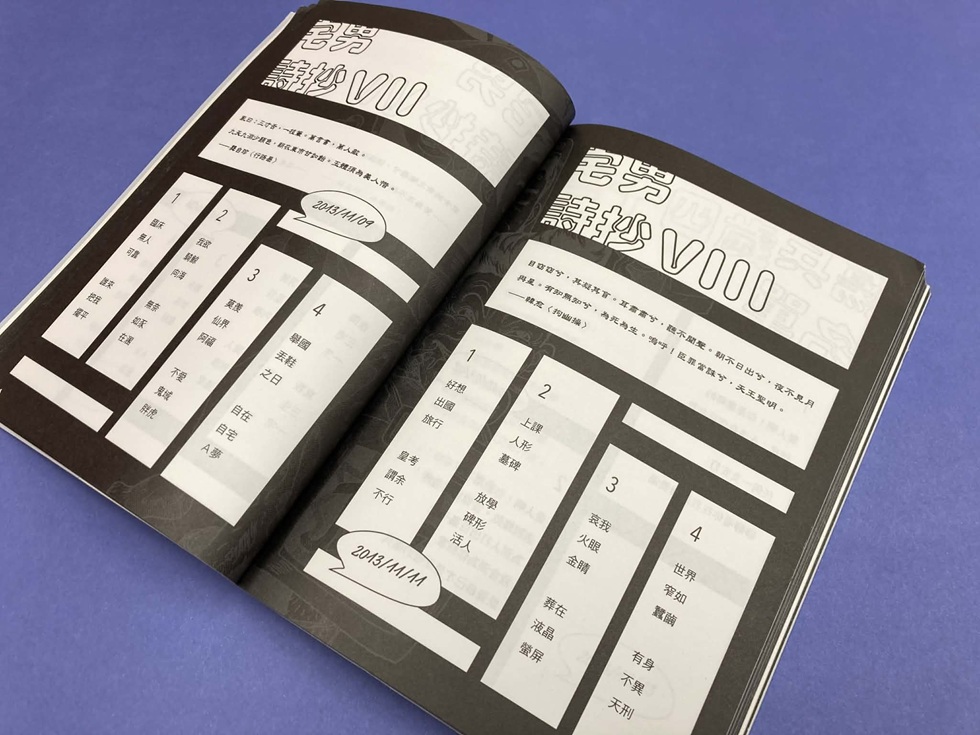 宅男
詩抄VII
——龔自珍〈行路易〉
2013/11/09
1
臨床
無人
可靠
誰來
把我
擺平
2
我欲
騎鯨
向海
無奈
如豕
在濁
3
莫羨
仙界
阿福
不愛
鬼域
胖虎
4
舉國
丟鞋
之日
自在
自宅
A夢
宅男
詩抄VIII
目窈窈兮,其凝其盲。耳肅肅兮,聽不聞聲。朝不日出兮,夜不見月
與星。有知無知兮,為死為生。嗚呼!臣罪當誅兮,天王聖明。
——韓愈〈拘幽操〉
1
好想
出國
旅行
皇考
謂余
不行
2
上課
人形
墓碑
放學
碑形
活人
2013/11/11
3
哀我
火眼
金睛
葬在
液晶
螢屏
4
世界
窄如
蠶繭
有身
不異
天刑